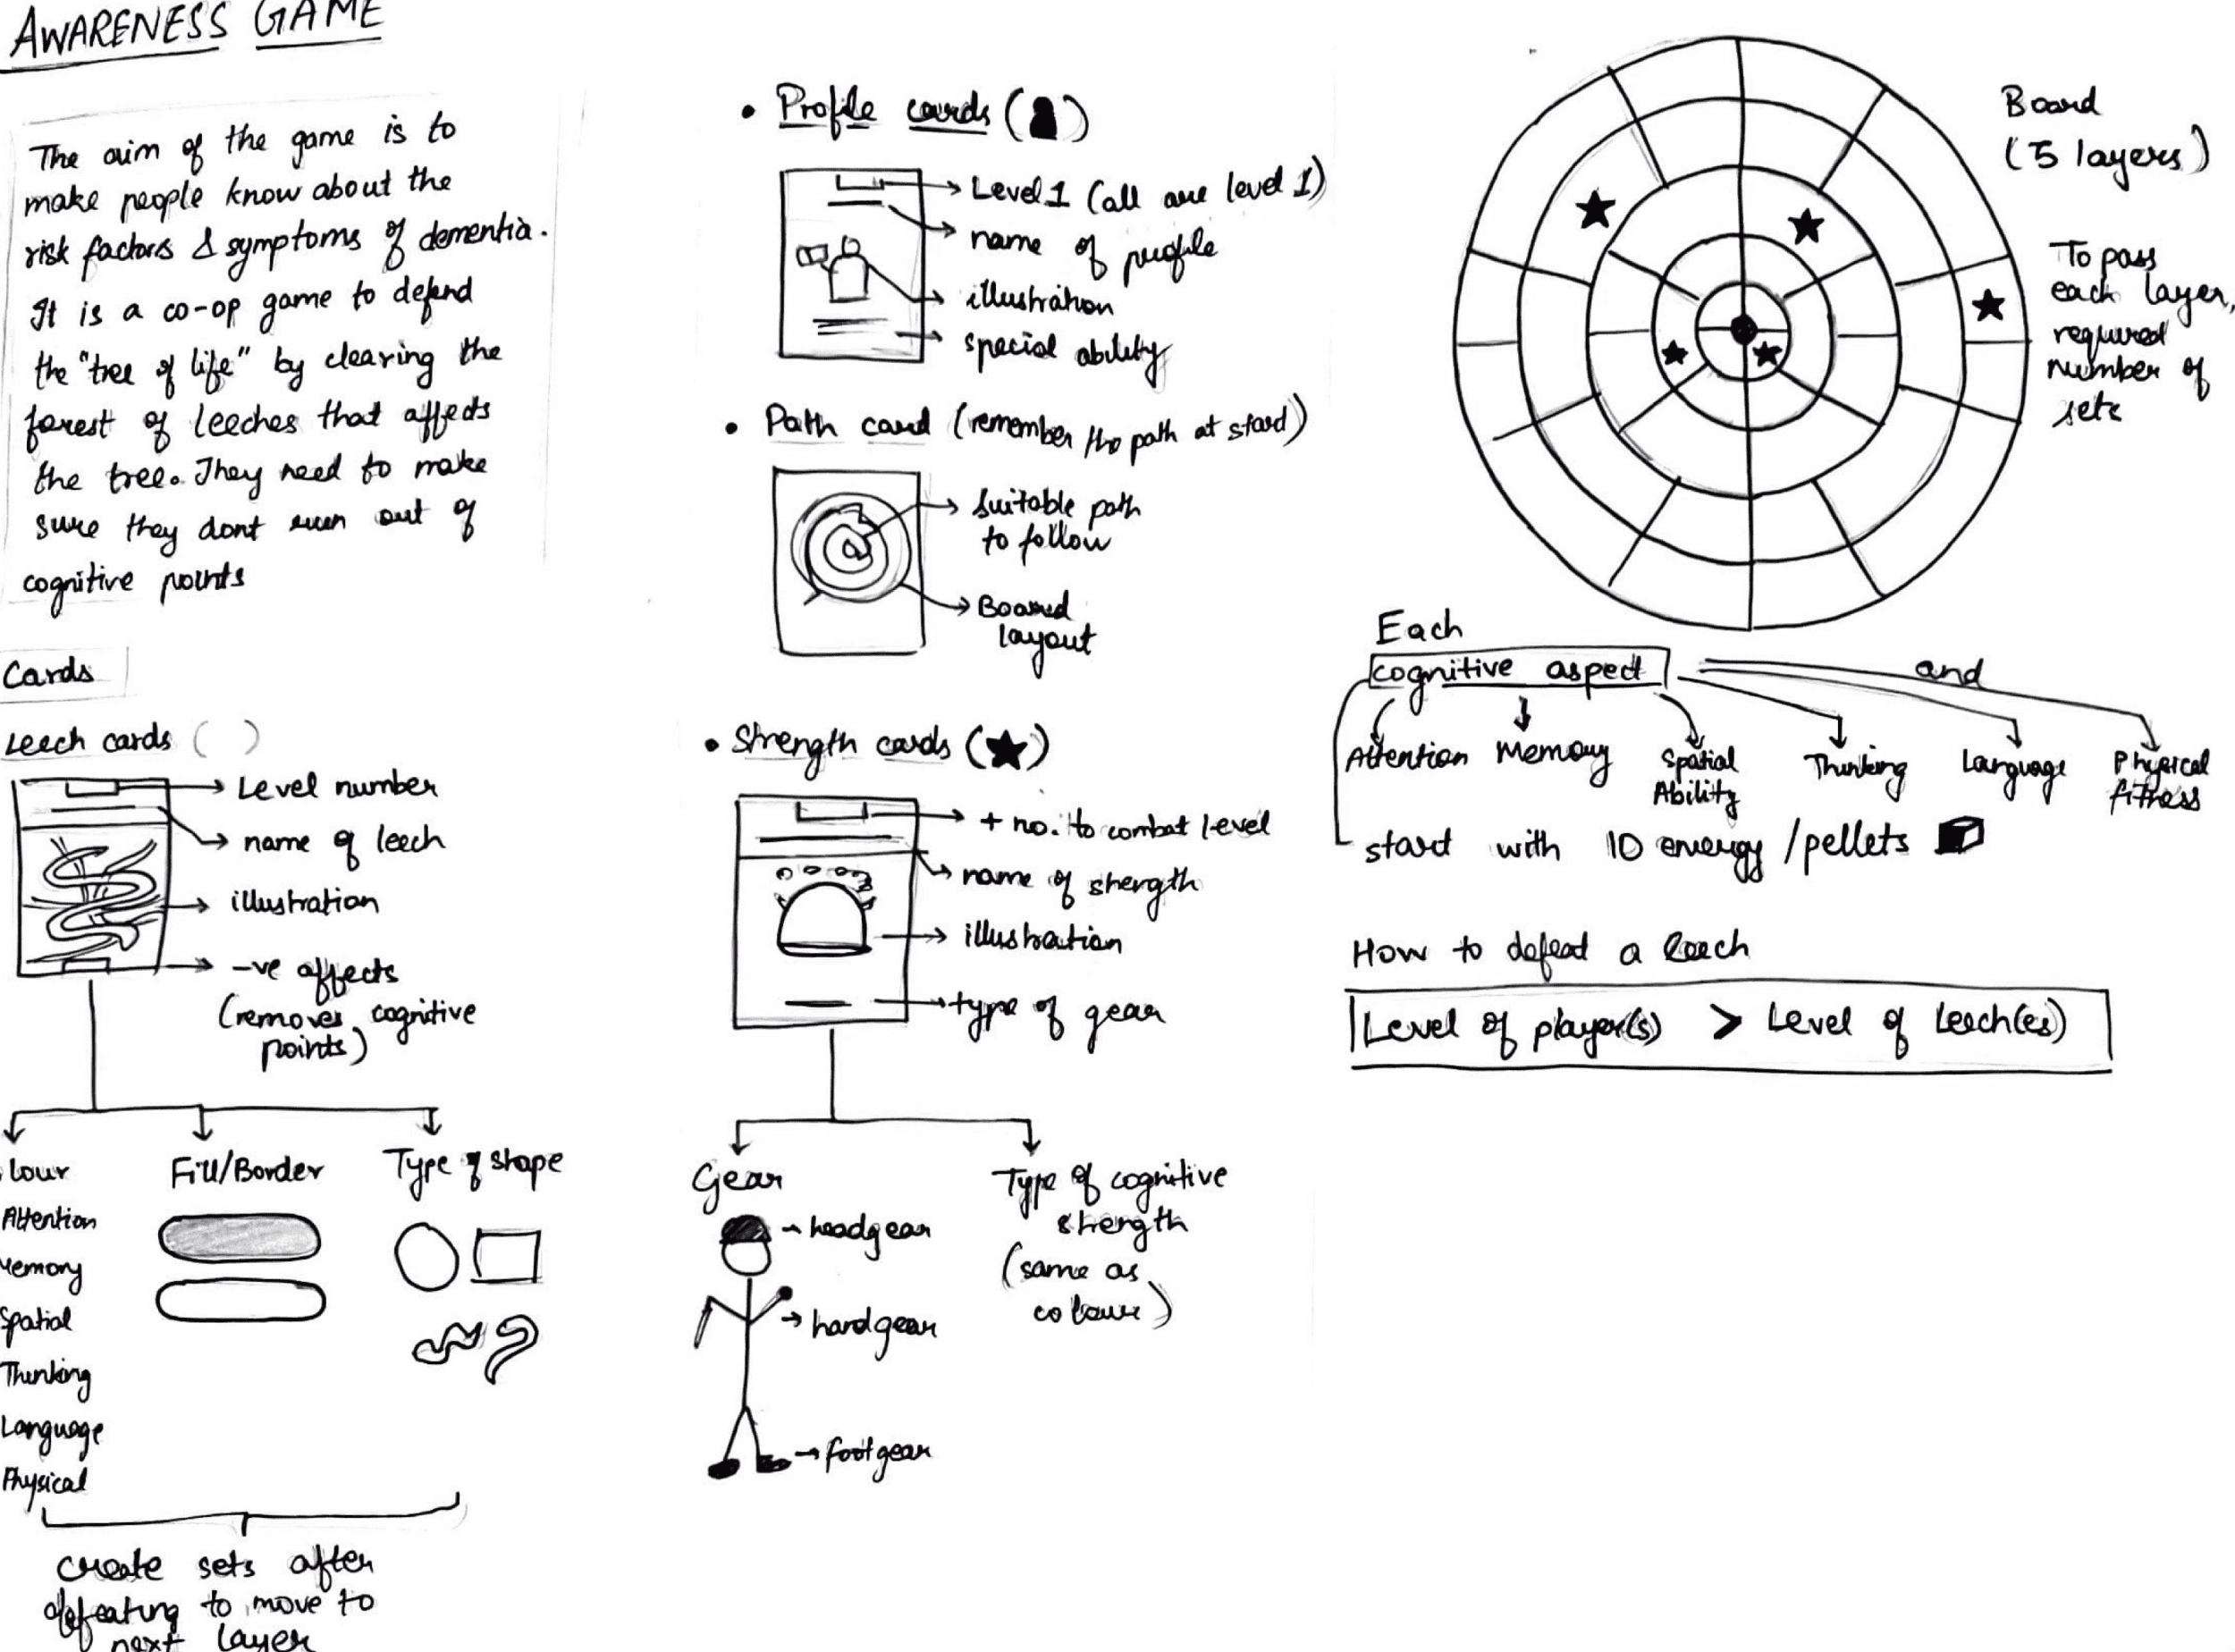 AWARENESS GAME
The aim of the game is to
make people know about the
risk factors & symptoms of dementia.
It is a co-op game to defend
the "tree of life" by clearing the
forest of leeches that affects
the tree. They need to make
sure they dont run out of
cognitive points
Cards
Leech cards ( )
Level number
name of leech
illustration
-ve affects
(removes cognitive
points)
lour
Attention
Memory
Spatial
Thinking
Language
Physical
Fill/Border
Type of shape
create sets after
defeating to move to
next layer
• Profile cards ( )
Level 1 (all are level 1)
name of profile
illustration
special ability
• Path card (remember the path at start)
Suitable path
to follow
Board
layout
• Strength cards (★)
+ no. to combat level
name of strength
illustration
type of gear
Gear
headgear
handgear
footgear
Type of cognitive
strength
(same as
colour)
Board
(5 layers)
To pass
each layer,
required
number of
sets
Each
cognitive aspect
and
Attention
Memory
Spatial
Ability
Thinking
Language
Physical
fitness
start with 10 energy /pellets
How to defeat a leech
Level of player(s) > Level of Leech(es)